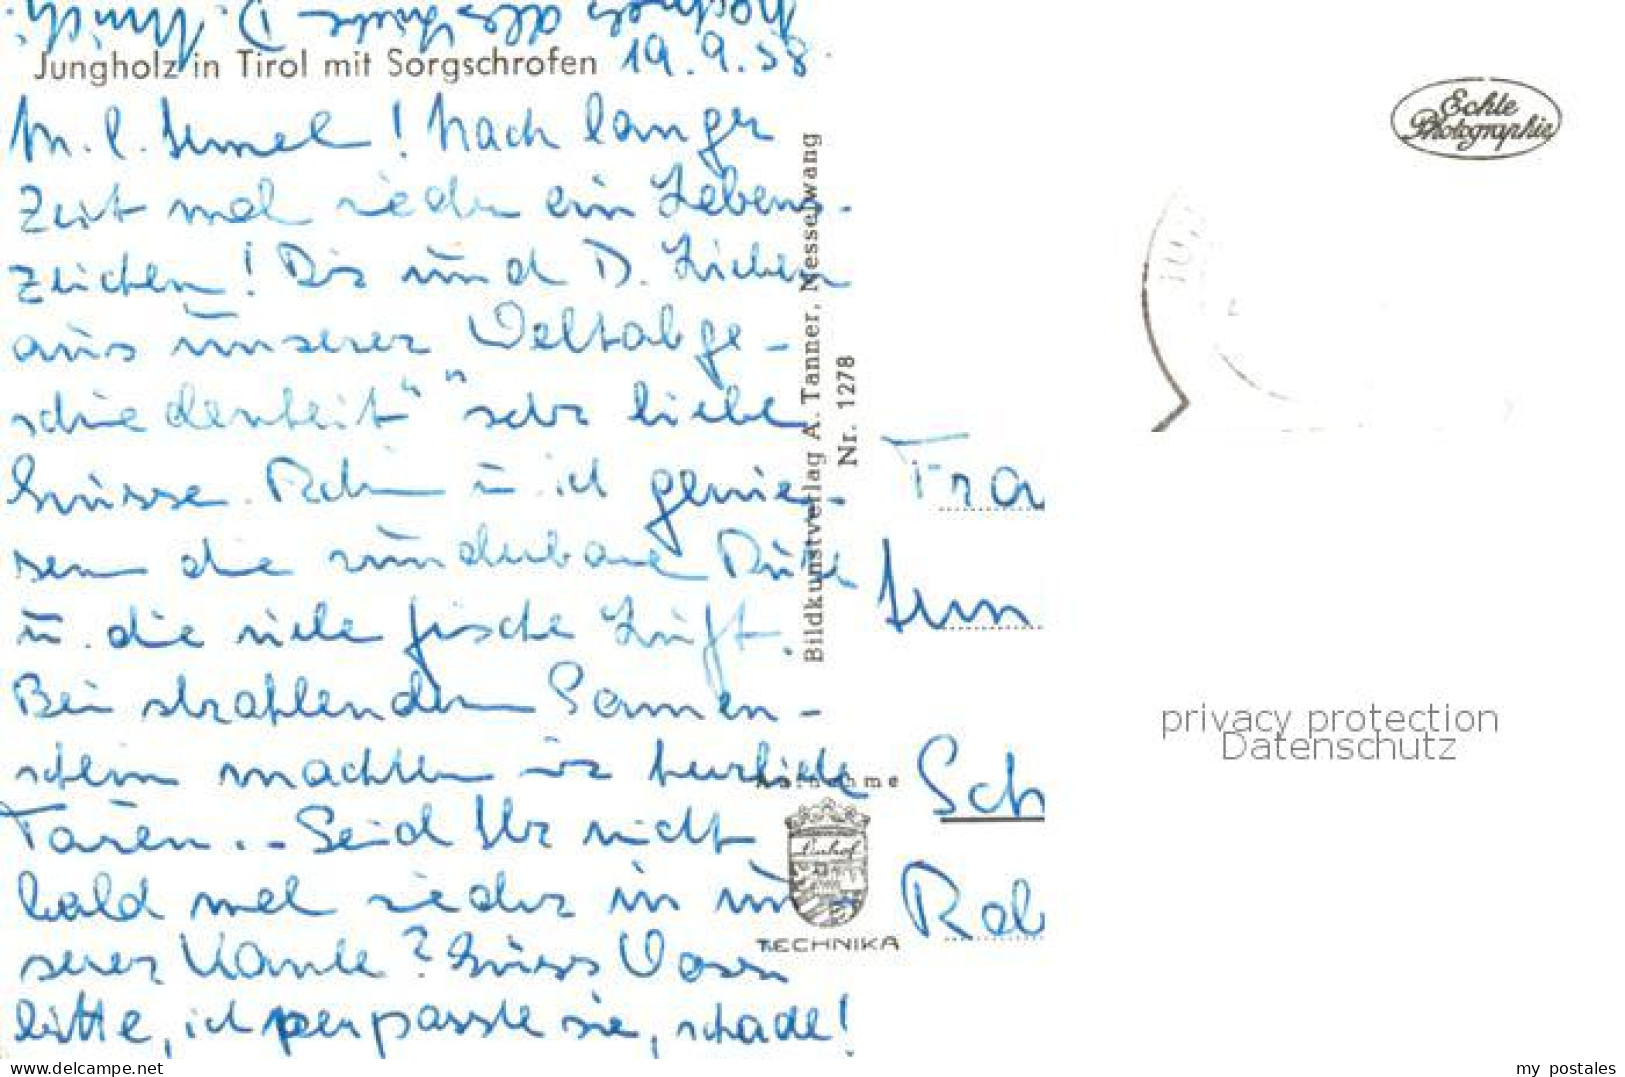 Nochmals alles Liebe D.
Jungholz in Tirol mit Sorgschrofen 19.9.58.
M. l. ! Nach langer
Zeit mal wieder ein Lebens-
zeichen! Dir und D. Lieben
aus unserer "Weltabge-
schiedenheit" sehr liebe
Grüsse. u. ich genie-
sen die wunderbare Ruhe
u. die viele frische Luft.
Bei strahlendem Sonnen-
schein machten wir herrliche
Touren. - Seid Ihr nicht
bald mal wieder in un-
serer Kante? Grüss
bitte, ich verpasste sie, schade!
Bildkunstverlag A. Tanner, Nesselwang
Nr. 1278
Aufnahme
Linhof
TECHNIKA
Echte
Photographie
JU
Fra
Sch
Rob
privacy protection
Datenschutz
www.delcampe.net
my_postales